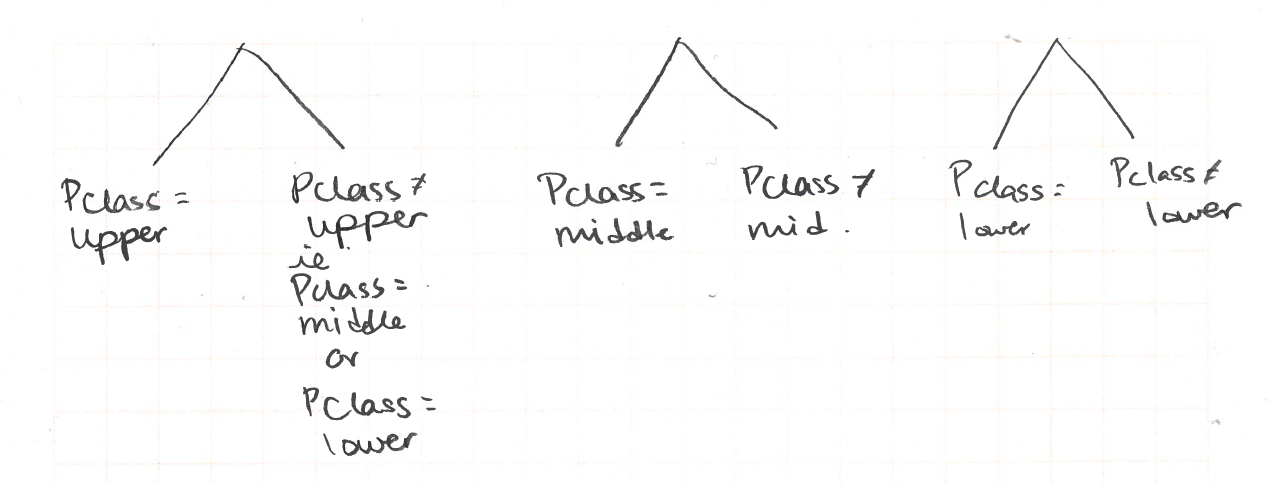 Pclass =
upper
Pclass ≠
upper
ie
Pclass =
middle
or
Pclass =
lower
Pclass =
middle
Pclass ≠
mid.
Pclass =
lower
Pclass ≠
lower